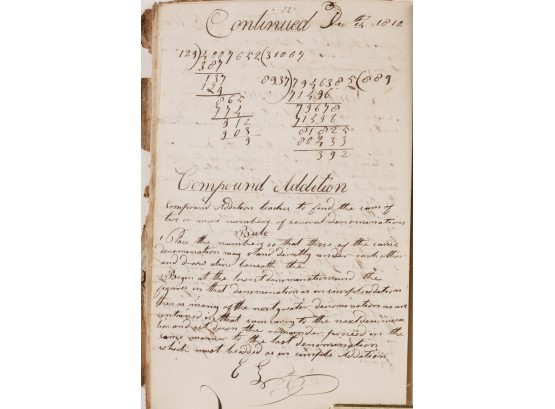 72
Continued Dec th 1812
129)4007652(31067
387
137
129
865
774
912
903
9
8937)7946385(889
71496
79678
71496
81825
80433
1392
Compound Addition
Compound Addition teaches to find the sum of
two or more numbers of several denominations
Rule
Place the numbers so that those of the same
denomination may stand directly under each other
and draw a line beneath the
Begin at the lowest denomination add the
figures in that denomination as in simple addition
as many of the next greater denomination as are
contained in that sum carry to the next denomina
tion and set down the remainder proceed in the
same manner to the last denomination
which must be added as in simple Addition